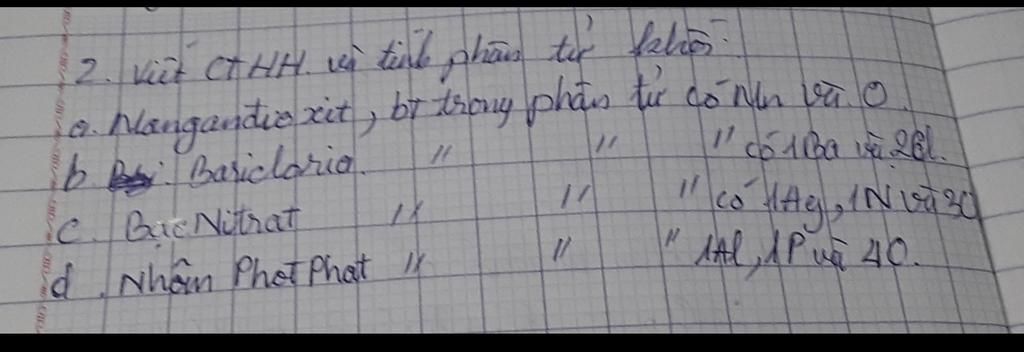 2. Viết CTHH và tính phân tử khối:
a. Mangandioxit, bt trong phân tử có Mn và O.
b. Bariclorid. " " " có 1Ba và 2Cl.
c. Bạc Nitrat " " " có 1Ag, 1N và 3O
d. Nhôm Photphat " " " 1Al, 1P và 4O.